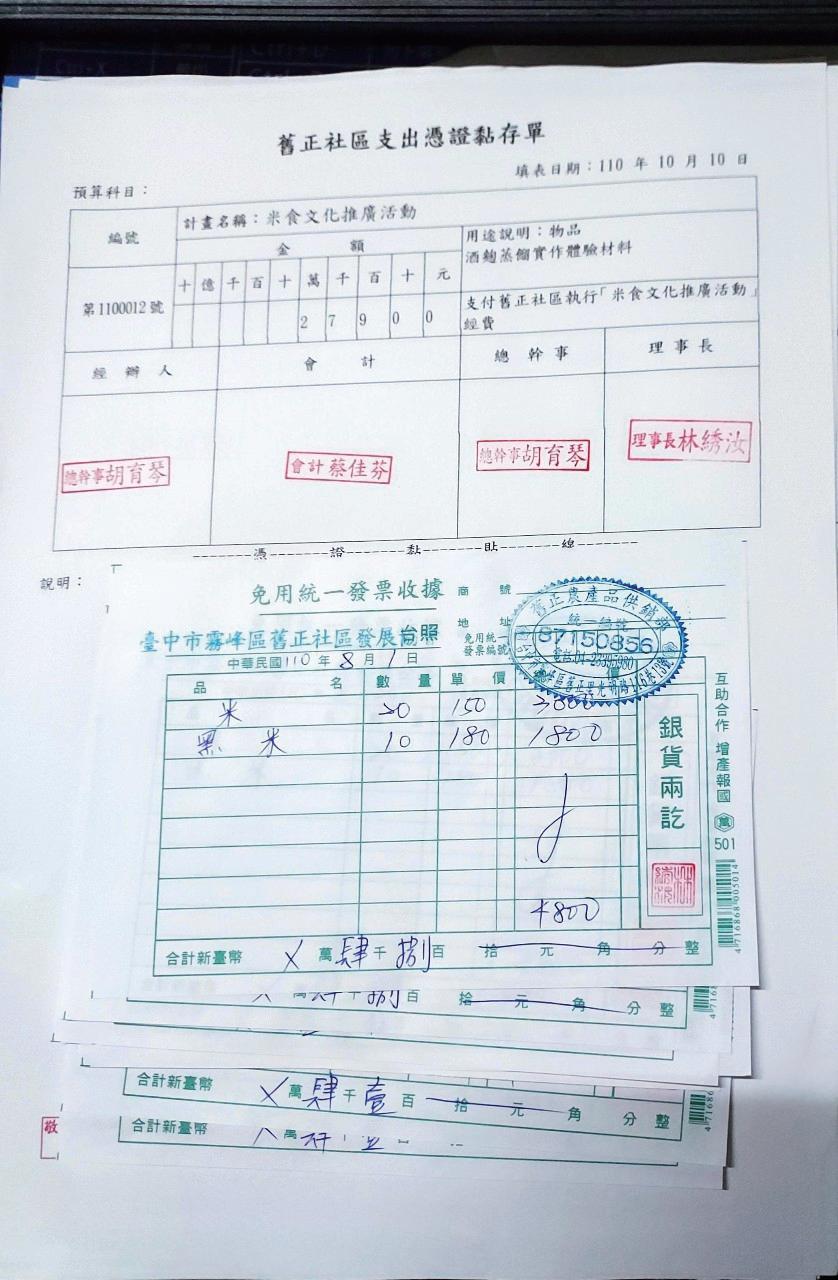 舊正社區支出憑證黏存單
填表日期：110 年 10 月 10 日
預算科目：
編號
計畫名稱：米食文化推廣活動
金 額
用途說明：物品
酒麴蒸餾實作體驗材料
十 億 千 百 十 萬 千 百 十 元
第1100012號
2 7 9 0 0
支付舊正社區執行「米食文化推廣活動」
經費
經 辦 人 會 計 總 幹 事 理 事 長
總幹事胡育琴 會計蔡佳芬 總幹事胡育琴 理事長林綉汝
憑 證 黏 貼 線
說明：
免用統一發票收據
商 號
地 址
免用統一
發票編號
舊正農產品供銷
統一編號
87150856
臺中市霧峰區舊正社區發展協 台照
中華民國110年 8 月 1 日
品 名 數 量 單 價
米 20 150 3000
黑 米 10 180 1800
4800
銀貨兩訖
互助合作 增產報國
萬
501
4 716868 005014
合計新臺幣 X 萬 肆 千 捌 百 拾 元 角 分 整
百 拾 元 角 分 整
合計新臺幣 X 萬 肆 千 壹 百 拾 元 角 分 整
合計新臺幣
敬